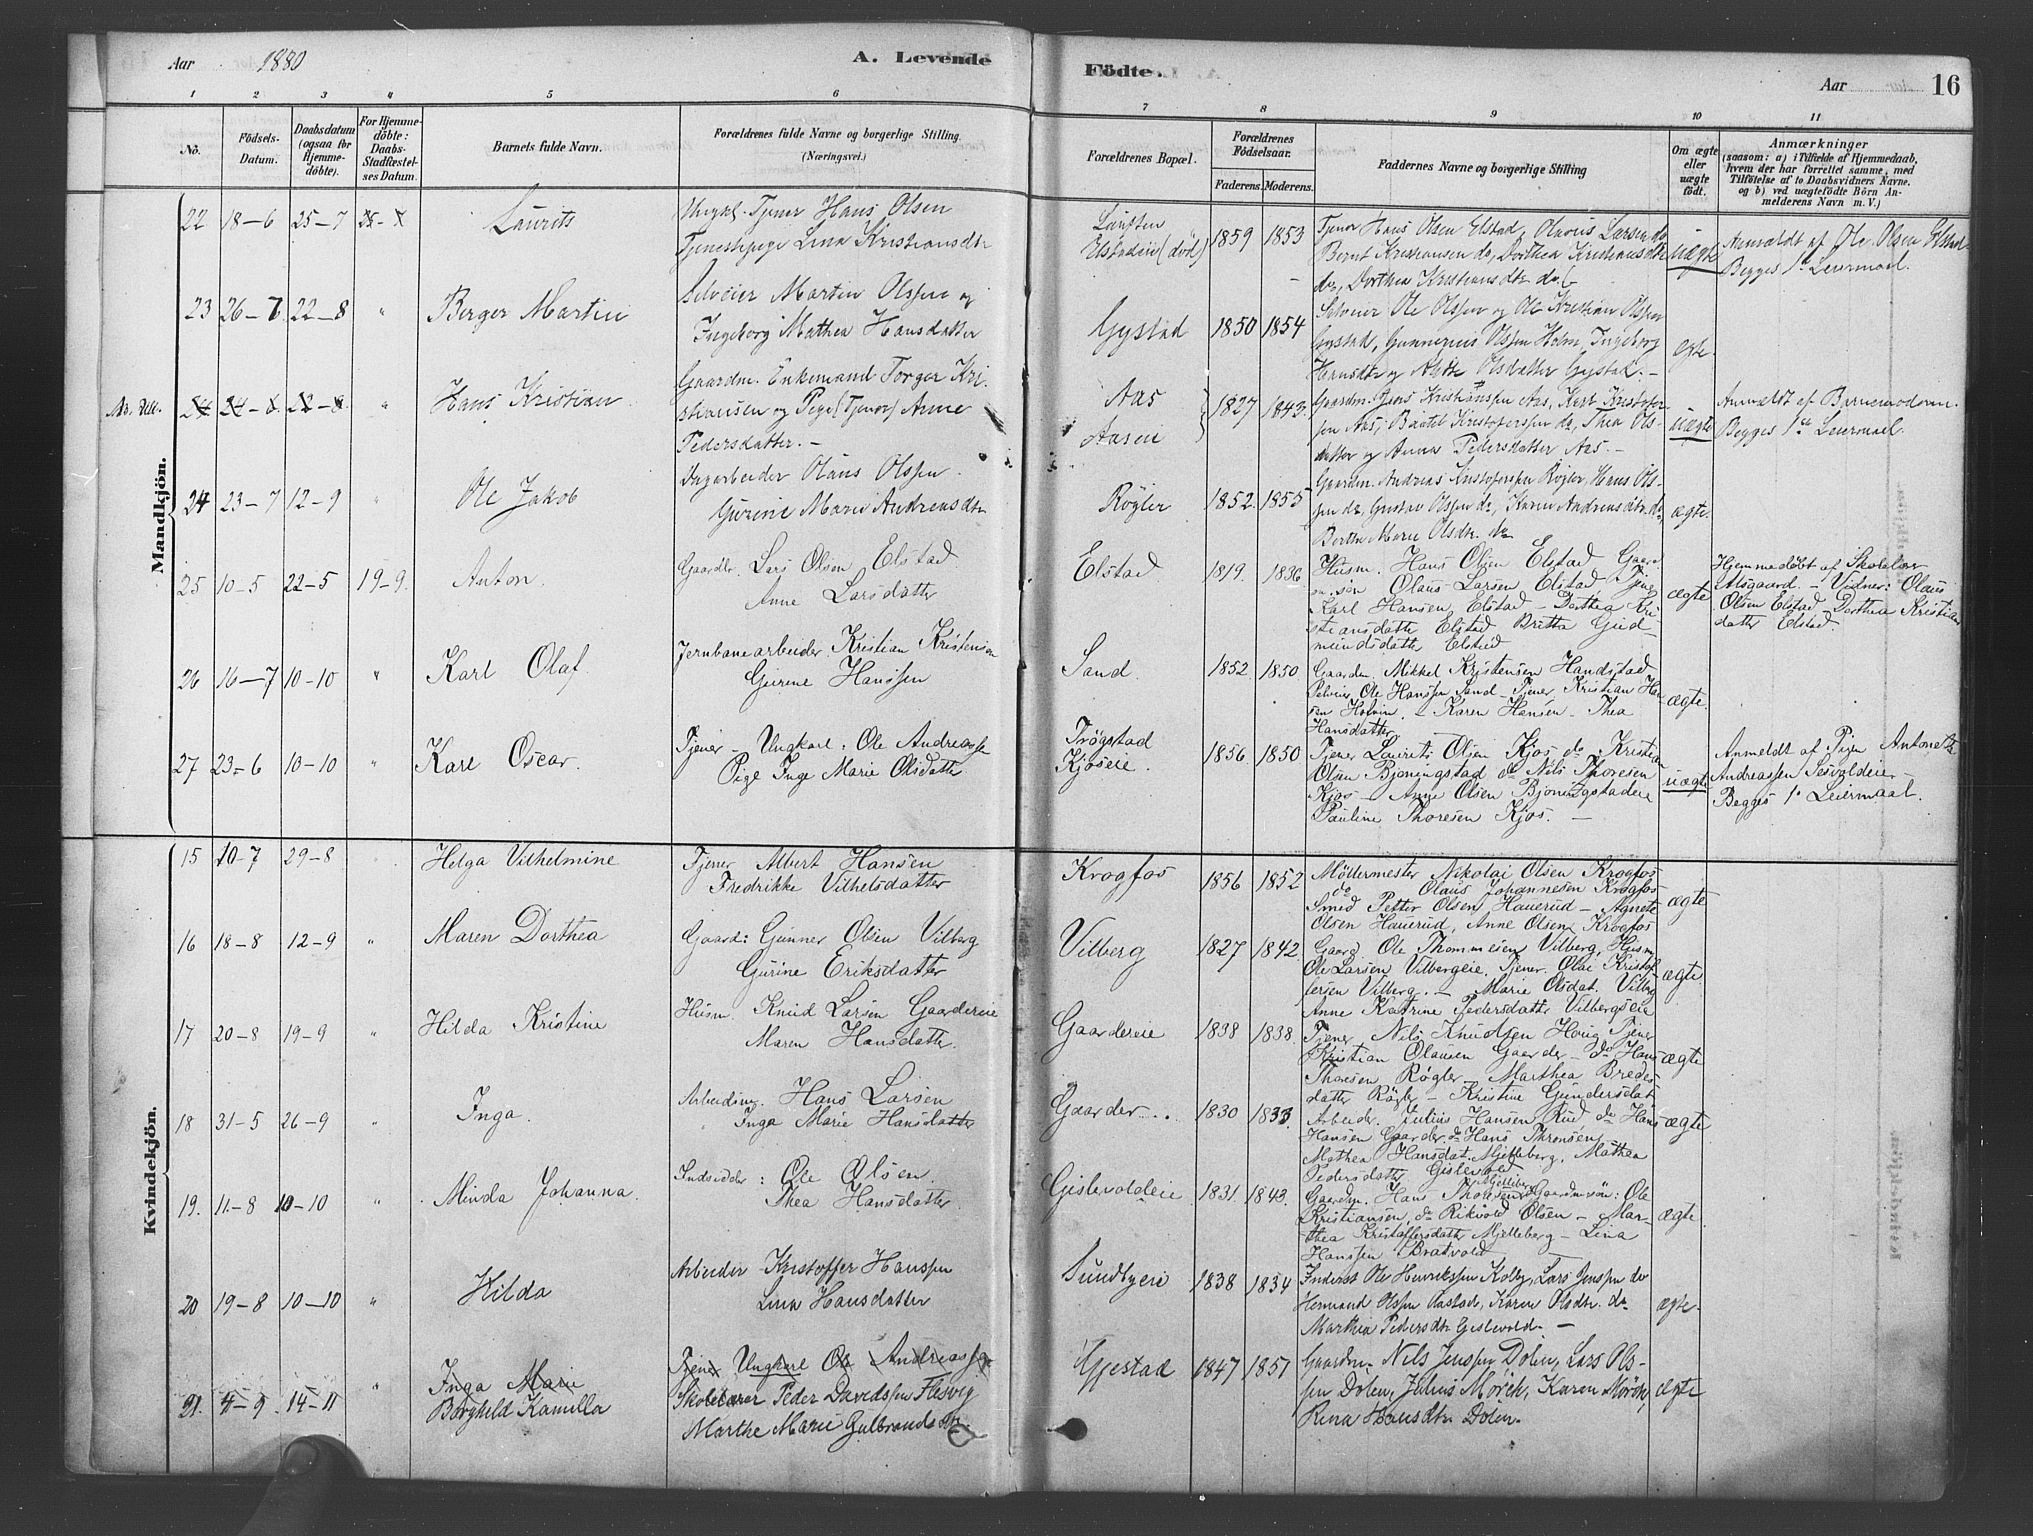 Aar 1880
A. Levende
Födte.
Aar
16
1 2 3 4 5 6 7 8 9 10 11
No.
Födsels-Datum.
Daabsdatum (ogsaa for Hjemme-döbte).
For Hjemme-döbte: Daabs-Stadfæstel-ses Datum.
Barnets fulde Navn.
Forældrenes fulde Navne og borgerlige Stilling.
(Næringsvei.)
Forældrenes Bopæl.
Forældrenes Födselsaar.
Faderens. Moderens.
Faddernes Navne og borgerlige Stilling
Om ægte eller uægte födt.
Anmærkninger
(saasom: a) i Tilfælde af Hjemmedaab, hvem der har forrettet samme, med Tilföielse af to Daabsvidners Navne. og b) ved uægtefödte Börn An-melderens Navn m. V.)
Mandkjön.
22 18-6 25-7
Laurits
Ungk. Tjener Hans Olsen
Tjenestepige Lina Kristiansdtr
Elstadeie (död)
1859 1853
Tjener Hans Olsen Elstad, Olavus Larsen do
Bernt Kristiansen do, Dorthea Kristiansdtr
do, Dorthea Kristiansdtr do
uægte
Anmeldt af Ole Olsen Elstad
Begges 1ste Leiermaal.
23 26-7 22-8 "
Berger Martin
Selveier Martin Olssen og
Ingeborg Mathea Hansdatter
Gystad
1850 1854
Selveier Ole Olssen og Ole Kristian Olssen
Gystad, Gunnerius Olssen Holm, Ingeborg
Hansdtr og Olsdatter Gystad. -
ægte.
24 24-6 22-8 "
Hans Kristian
Gaardm. Enkemand Torger Kri-
stiansen og Pige (Tjener) Anne
Pedersdatter. -
Aas
Aaseie
1827 1843.
Gaardm. Kristianssen Aas, Karl Kristofer-
sen Aas, Kristoferssen do, Thea Ols-
datter og Anna Pedersdatter Aas. -
uægte
Anmeldt af Barnemoderen.
Begges 1ste Leiermaal.
24 23-7 12-9 "
Ole Jakob
Dagarbeider Olaus Olssen.
Gurine Marie Andreasdtr
Rögler
1852. 1855
Gaardm. Andreas Kristofersen Rögler, Hans Ols-
sen do, Gustav Olssen do, Karen Andreasdtr do,
Berthe Marie Olsdtr. do
ægte.
25 10-5 22-5 19-9.
Anton.
Gaardbr. Lars Olsen Elstad
Anne Larsdatter
Elstad
1819. 1836.
Husm. Hans Olsen Elstad Gaard
m. sön Olaus Larsen Elstad Tjene
Karl Hansen Elstad - Dorthea Kri-
stiansdatte Elstad Britta Gud-
mundsdatte Elstad
ægte
Hjemmedöbt af Skolelær
Alsgaard - Vidner: Olaus
Olsen Elstad Dorthea Kristian
datter Elstad.
26 16-7 10-10 "
Karl Olaf.
Jernbanearbeider. Kristian Kristensen
Gurine Hanssen
Sand.
1852 1850
Gaardm. Mikkel Kristensen Handstad
Selveier Ole Hanssen Sand - Tjener Kristian Han-
sen Holvin. - Karen Hansen - Thea
Hansdatter
ægte.
27 23-6 10-10 "
Karl Oscar.
Tjener - Ungkarl: Ole Andreassen
Pige Inge Marie Olsdatter
Trögstad
Kjoseie.
1856 1850
Tjener Laurits Olsen Kjos do Kristian
Olsen Bjoningstad do Nils Thoresen
Kjos - Anne Olsen Bjoningstadeie
Pauline Thoresen Kjos. -
uægte
Anmeldt af Pigen Antonette
Andreassen Sesvoldeier -
Begges 1ste Leiermaal.
Kvindekjön.
15 10-7 29-8
Helga Vilhelmine
Tjener Albert Hansen
Fredrikke Vilhelsdatter
Krogfos
1856 1852
Möllermester Nikolai Olsen Krogfos
do Olaus Johannesen Krogfos
Smed Petter Olsen Hauerud - Agnete
Olsen Hauerud, Anne Olsen Krogfos
ægte
16 18-8 12-9 "
Maren Dorthea
Gaard: Gunner Olsen Vilberg
Gurine Eriksdatter
Vilberg
1827 1842.
Gaard. Ole Thommesen Vilberg, Husm
Ole Larsen Vilbergeie. Tjener. Olai Kristof
fersen Vilberg. - Marie Olsdat. Vilberg
Anne Katrine Pedersdatter Vilbergseie
ægte
17 20-8 19-9 "
Hilda Kristine
Husm. Knud Larsen Gaardereie
Maren Hansdatter.
Gaardereie
1838 1838.
Tjener Nils Knudsen Houg Tjener
Kristian Olausen Gaarder - do Hans
Thoresen Rögler Marthea Bredes-
datter Rögler - Kristine Gundersdat
ægte
18 31-5 26-9 "
Inga.
Arbeidsm. Hans Larsen
Inga Marie Hansdatter
Gaarder..
1830 1833.
Arbeider. Julius Hansen Rud do Hans
Hansen Gaarder do Hans Thoresen
Mathea Hansdat. Mjelleberg, Mathea
Pedersdatter Gislevold
ægte
19. 11-8 10-10 "
Minda Johanna.
Indsidder: Ole Olsen.
Thea Hansdatter.
Gislevoldeie
1831. 1843.
Gaardm. Hans Thoresen Mjelleberg Gaardmsön: Ole
Kristiansen, do Rikvold Olsen - Mar-
thea Kristoffersdatt Mjelleberg - Lina
Hanssen Bratvold
ægte
20 19-8 10-10 "
Hilda
Arbeider Kristoffer Hanssen
Lina Hansdatter
Sundbyeie
1838 1834
Inderst Ole Henrikssen Kolby, Lars Jenssen do
Hermand Olssen Aastad, Karen Olsdtr. do
Marthea Pedersdtr Gislevold -
ægte
21. 4-9 14-11 "
Inga Marie
Borghild Kamilla
Tjener Ungkarl Ole Andreassen
Skolelærer Peder Davidssen Flesvig
Marthe Marie Gulbrandsdtr.
Gjestad
1847 1851
Gaardm. Nils Jenssen Dölen, Lars Ols-
sen Dölen, Julius Mörch, Karen Mörch,
Rina Hansdtr Dölen.
ægte